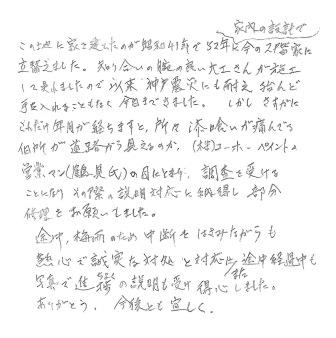 家内の設計で
この地に家を建てたのが昭和41年で52年に今の2階家に
立替えました。知り合いの腕の良い大工さんが施工
して呉れましたので以来神戸震災にも耐え殆んど
手を入れることもなく今日まできました。しかしさすがに
これだけ年月が経ちますと、所々漆喰いが痛んでる
個所が道路から見えるのか、(株)ユーホーペイントの
営業マン(鶴見氏)の目にとまり、調査を受ける
ことになり その際の説明対応に納得し 部分
修理をお願いしました。
途中、梅雨のため中断をはさみながらも
熱心で誠実な対処と対応に、途中経過中も
写真で進捗の説明も受け得心しました。
ありがとう。今後とも宜しく。